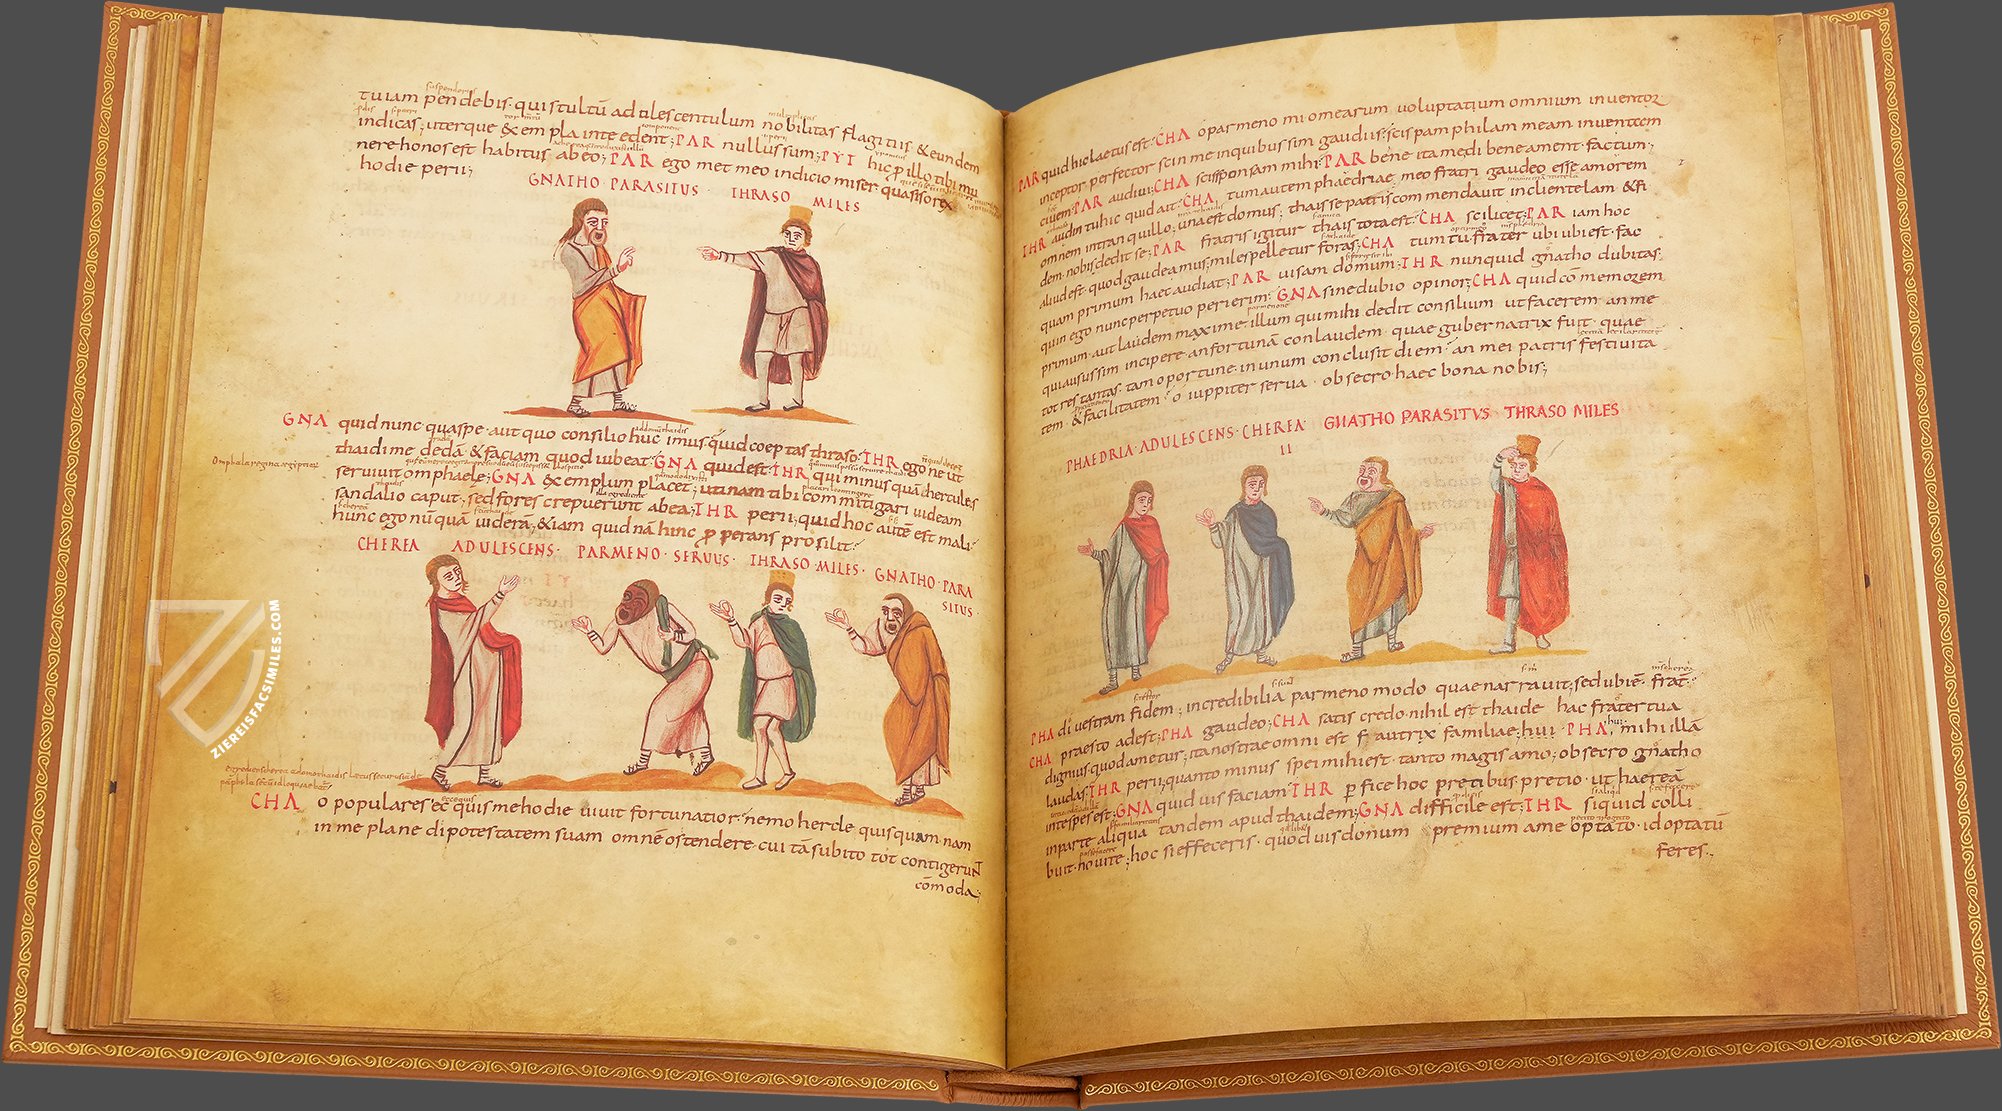 tu iam pendebis · qui stultū adulescentulum nobilitas flagitiis & eundem
indicas; uterque exempla inte edent; PAR nullus sum; PYI hic p̄ illo tibi mu
nere honos est habitus abeo; PAR ego met meo indicio miser quasi sorex
hodie perii;
GNATHO · PARASITUS · THRASO MILES
GNA quid nunc quaspe · aut quo consilio huc imus · quid coeptas thraso; THR egone ut
thaidi me dedā & faciam quod iubeat; GNA quid est; THR qui minus quā hercules
Omphala regina
seruiuit omphaele; GNA exemplum placet; utinam tibi commitigari uideam
sandalio caput; sed fores crepuerunt abea; THR perii; quid hoc autē est mali
hunc ego nūquā uiderā; & iam quid nā hinc pperans prosilit;
CHEREA ADULESCENS · PARMENO · SERUUS · THRASO · MILES · GNATHO · PARA
SITUS ·
CHA o populares ec quis me hodie uiuit fortunatior · nemo hercle quisquam nam
in me plane di potestatem suam omnē ostendere · cui tā subito tot contigerunt
cōmoda;
PAR quid hic laetus est · CHA o parmeno mi omearum uoluptatium omnium inuentor
inceptor perfector scin me in quibus sim gaudiis; scis pamphilam meam inuentem
ciuem; PAR audiui; CHA scis sponsam mihi; PAR bene ita me di bene ament factum;
THR audin tu hic quid ait · CHA tum autem phaedriae meo fratri gaudeo esse amorem
omnem in tranquillo; una est domus; thais se patris commendauit in clientelam & fi
dem · nobis dedit se; PAR fratris igitur thais tota est · CHA scilicet; PAR iam hoc
aliud est · quod gaudeamus; miles pelletur foras; CHA tum tu frater ubi ubi est · fac
quam primum haec audiat; PAR uisam domum; THR nunquid gnatho dubitas
quin ego nunc perpetuo perierim; GNA sine dubio opinor; CHA quid cōmemorem
primum · aut laudem maxime · illum qui mihi dedit consilium ut facerem · an me
qui ausus sim incipere · an fortunā conlaudem · quae gubernatrix fuit · quae
tot res tantas · tam oportune · in unum conclusit diem · an mei patris festiuita
tem · & facilitatem · o iuppiter serua · obsecro haec bona nobis;
PHAEDRIA · ADULESCENS · CHEREA · GNATHO PARASITUS THRASO MILES
II
PHA di uestram fidem; incredibilia parmeno modo quae narrauit; sed ubi ē frat̄
CHA praesto adest; PHA gaudeo; CHA satis credo · nihil est thaide hac frater tua
dignius quod ametur; ita nostrae omni est fautrix familiae; hui · PHA mihi illā
laudas; THR perii; quanto minus spei mihi est · tanto magis amo; obsecro gnatho
inte spes est; GNA quid uis faciam; THR pfice hoc precibus · pretio · ut haereā
in parte aliqua tandem apud thaidem; GNA difficile est; THR siquid colli
buit · noui te; hoc si effeceris · quod uis donum premium a me optato · id optatū
feres ·
ZIEREISFACSIMILES.COM